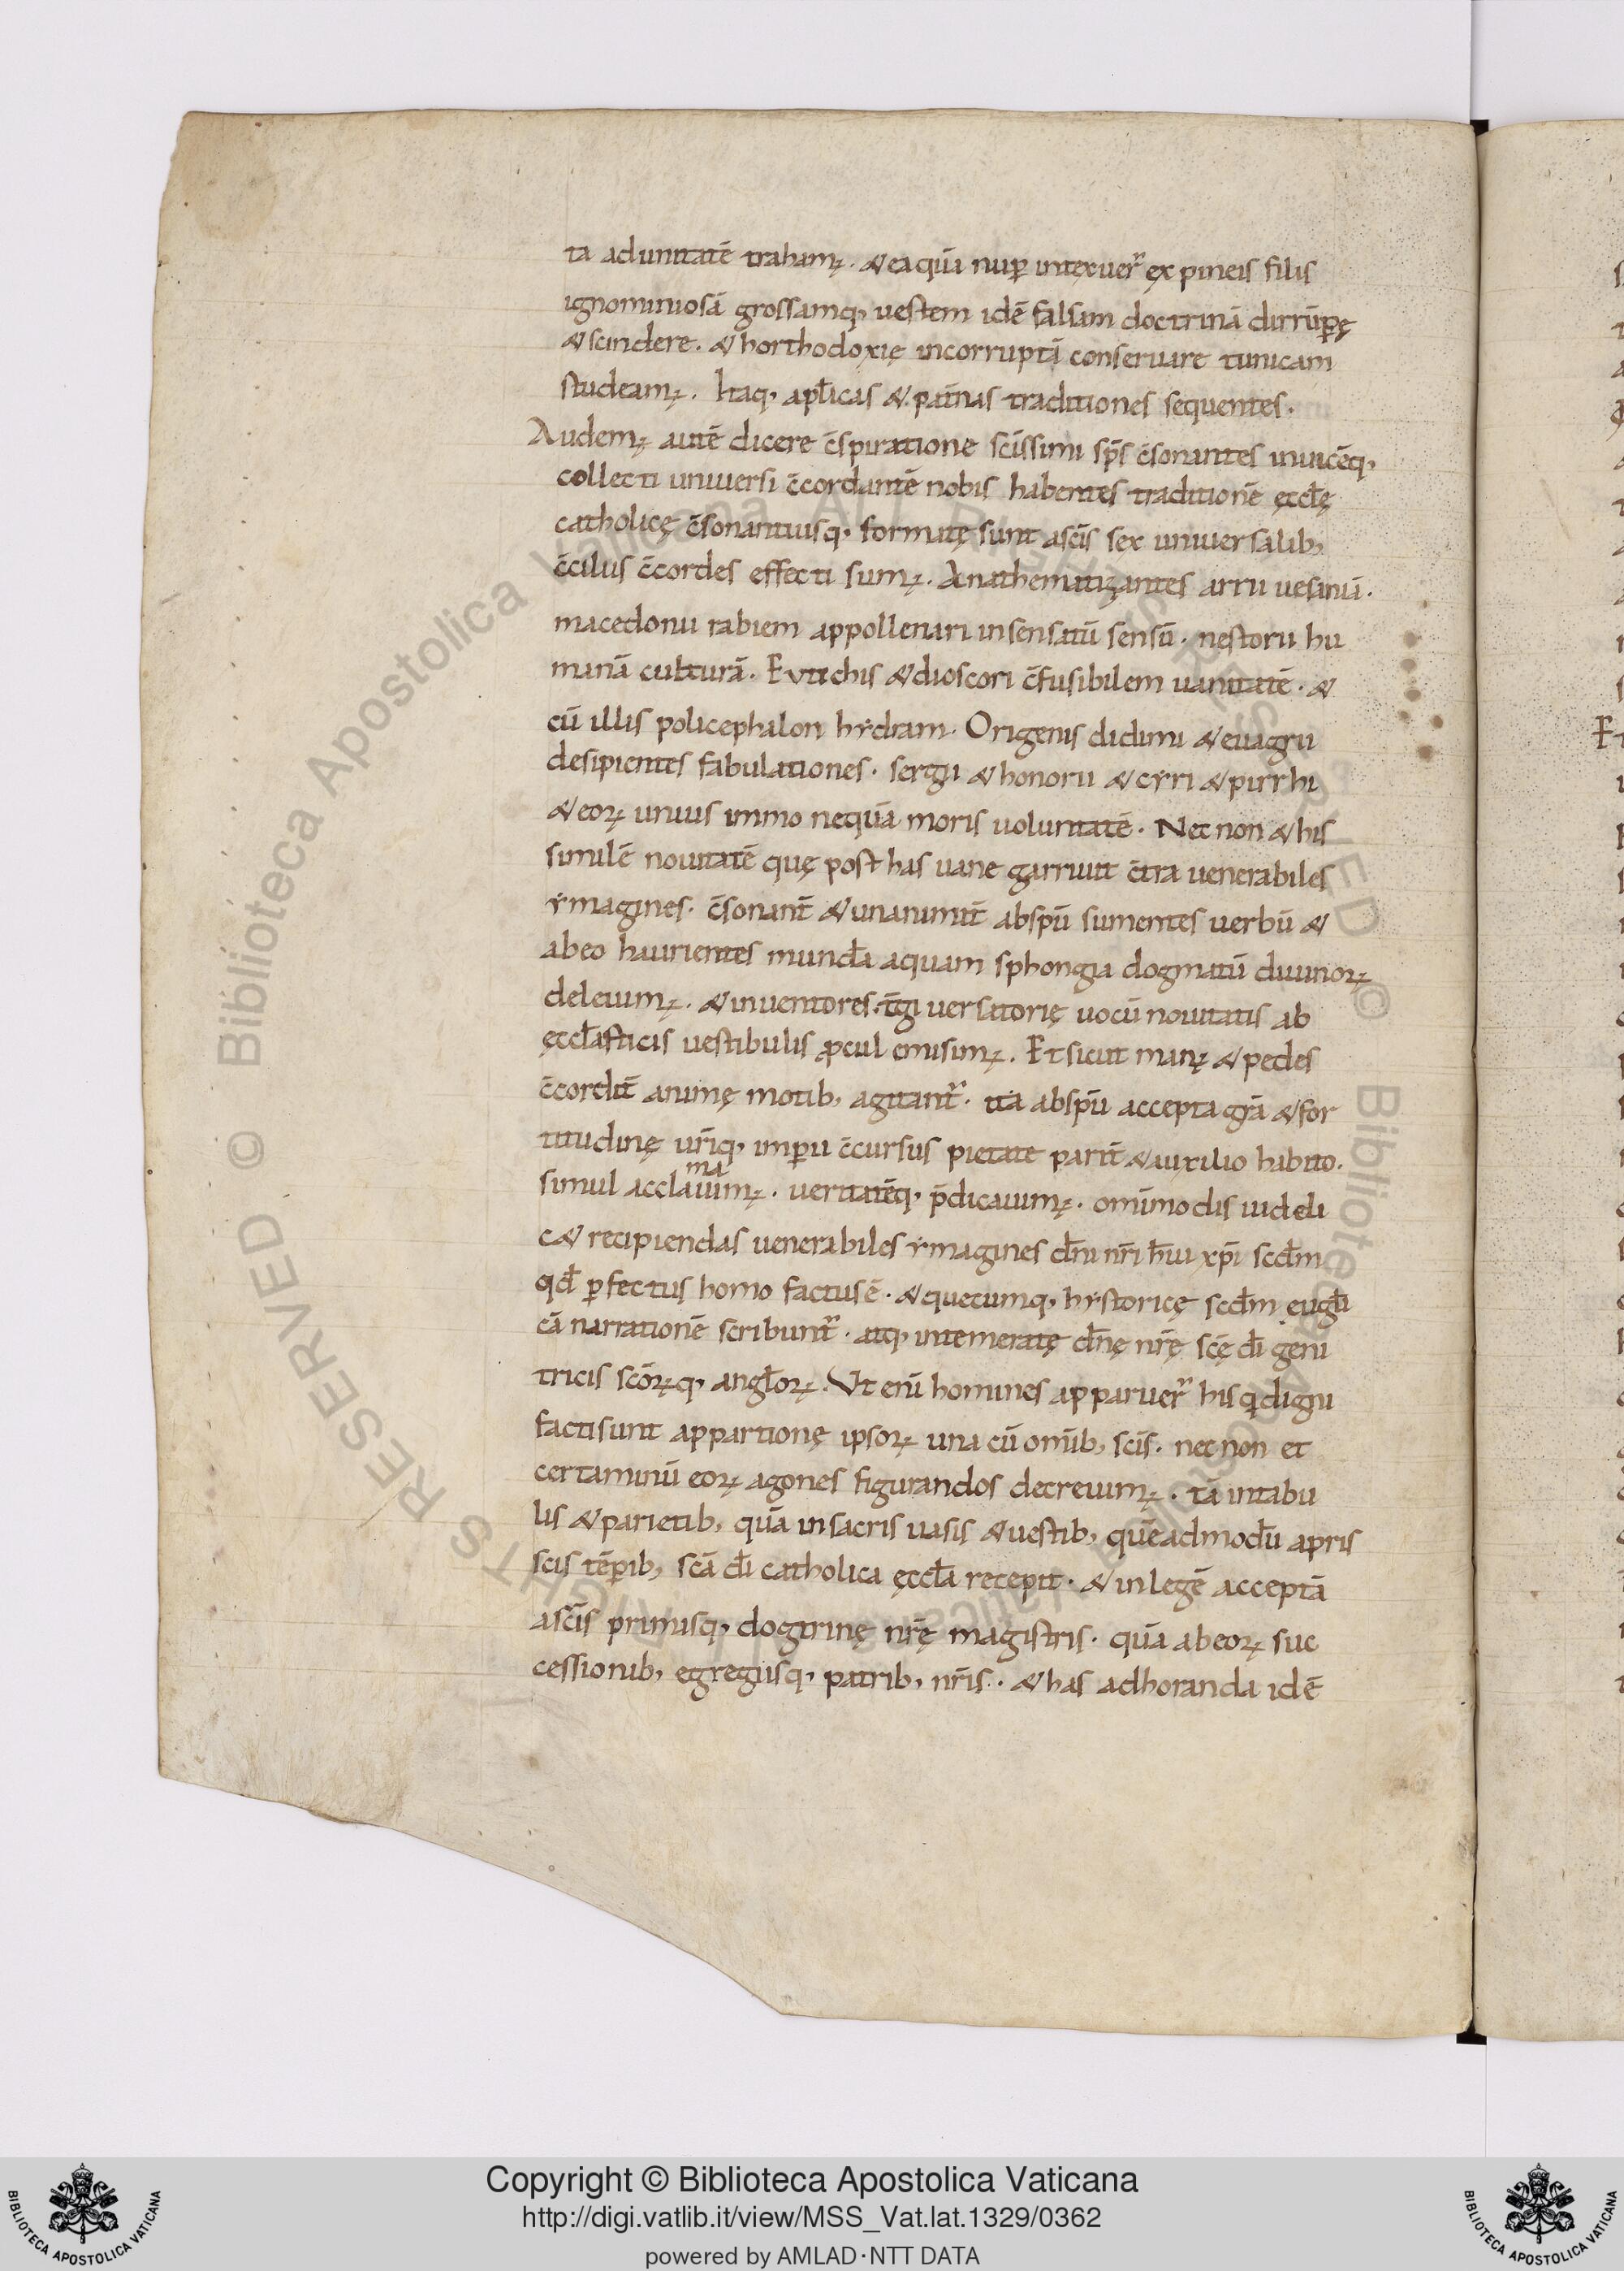 ta ad unitatē traham᷒. & ea quā nuꝑ intexuer̃ ex pineis filis
ignominiosā grossamq, uestem idē falsam doctrinā dirrūꝑę
& scindere. & horthodoxię incorruptā conseruare tunicam
studeam᷒. Itaq, apłicas & pat̄nas traditiones sequentes.
Audem᷒ autē dicere c̄spiratione sc̄issimi sp̄s c̄sonantes inuicēq,
collecti uniuersi c̄cordantē nobis habentes traditionē ęccłę
catholicę c̄sonantiusq, formatę sunt a sc̄is sex uniuersalib,
c̄ciliis c̄cordes effecti sum᷒. Anathematizantes arrii uesaniā.
macedonii rabiem appollenari insensatū sensū. nestorii hu
manā culturā. Eutichis & dioscori c̄fusibilem uanitatē. &
cū illis policephalon hydram. Origenis didimi & euagrii
desipientes fabulationes. sergii & honorii & cyrri & pirrhi
& eoꝝ unius immo nequā moris uoluntatē. Nec non & his
similē nouitatē quę post has uane garriuit c̄tra uenerabiles
ymagines. c̄sonant̄ & unanimit̄ ab sp̄u sumentes uerbū &
ab eo haurientes munda aquam sphongia dogmatū diuinoꝝ
deleuim᷒. & inuentores t̄giuersatorię uocū nouitatis ab
ęccłasticis uestibulis ꝓcul emisim᷒. Et sicut man᷒ & pedes
c̄cordit̄ animę motib, agitant̃. ita ab sp̄u accepta gr̄a & for
titudinę ur̄iq, imꝑii c̄cursus pietate parit̄ & auxilio habito.
simul acclamauim᷒. ueritatēq, p̄dicauim᷒. omīmodis uideli
c& recipiendas uenerabiles ymagines dn̄i nr̄i h̄iu xp̄i scdm̄
qd̄ ꝑfectus homo factus ē. & quecumq, hystoricę scdm̄ eugłi
cā narrationē scribunt̃. atq, intemeratę dn̄ę nr̄ę sc̄ę dī geni
tricis sc̄oꝝq, angłoꝝ. Vt enī homines apparuer̃ his q̄ digni
facti sunt appartionę ipsoꝝ una cū om̄ib, sc̄is. nec non et
certaminū eoꝝ agones figurandos decreuim᷒. tā in tabu
lis & parietib, quā in sacris uasis & uestib, quēadmodū a pris
scis tēꝑib, sc̄a dī catholica ęccła recepit. & in legē acceptā
a sc̄is primisq, dogtrinę nr̄ę magistris. quā ab eoꝝ suc
cessionib, egregiisq, patrib, nr̄is. & has adhoranda idē
Copyright © Biblioteca Apostolica Vaticana
http://digi.vatlib.it/view/MSS_Vat.lat.1329/0362
powered by AMLAD·NTT DATA
BIBLIOTECA APOSTOLICA VATICANA
BIBLIOTECA APOSTOLICA VATICANA